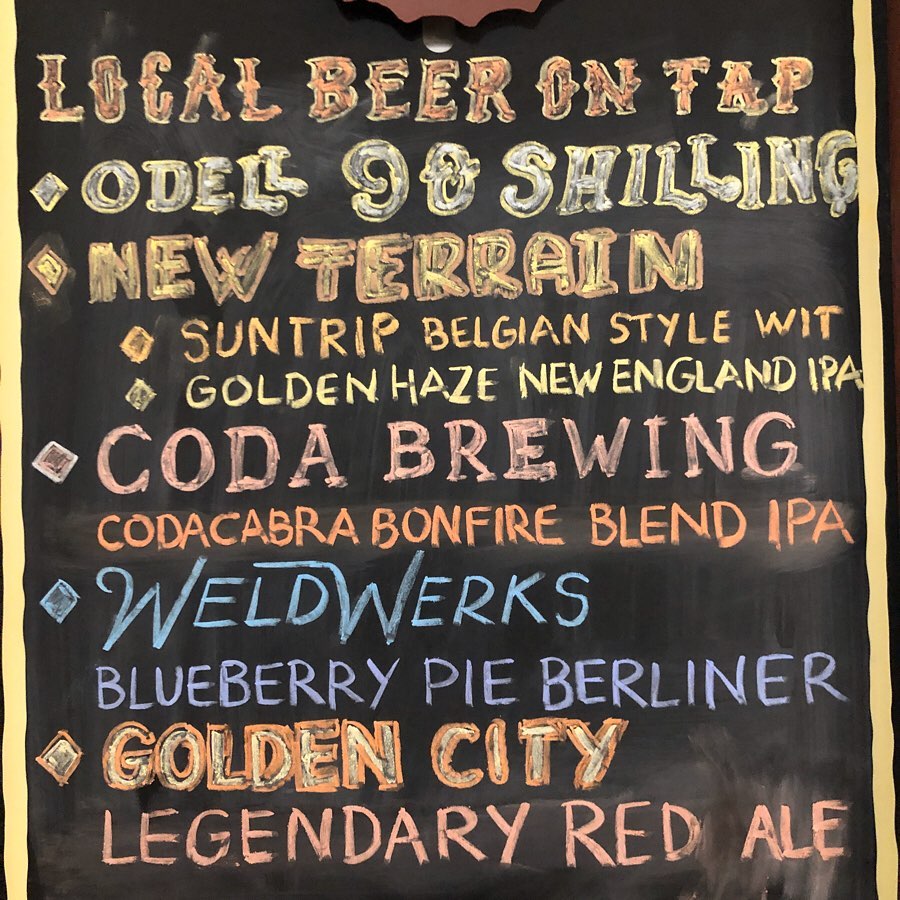 LOCAL BEER ON TAP
ODELL 90 SHILLING
NEW TERRAIN
SUNTRIP BELGIAN STYLE WIT
GOLDEN HAZE NEW ENGLAND IPA
CODA BREWING
CODACABRA BONFIRE BLEND IPA
WELDWERKS
BLUEBERRY PIE BERLINER
GOLDEN CITY
LEGENDARY RED ALE